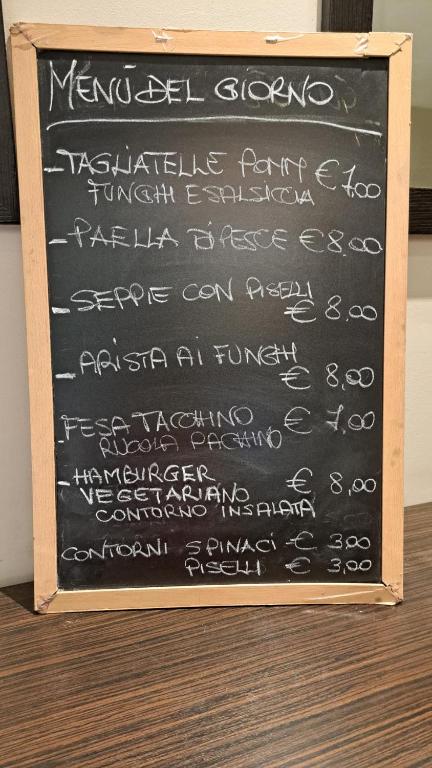 MENÙ DEL GIORNO
- TAGLIATELLE POMM € 7,00
FUNGHI E SALSICCIA
- PAELLA DI PESCE € 8,00
- SEPPIE CON PISELLI
€ 8,00
- ARISTA AI FUNGHI
€ 8,00
FESA TACCHINO € 7,00
RUCOLA PACHINO
- HAMBURGER
VEGETARIANO € 8,00
CONTORNO INSALATA
CONTORNI SPINACI € 3,00
PISELLI € 3,00